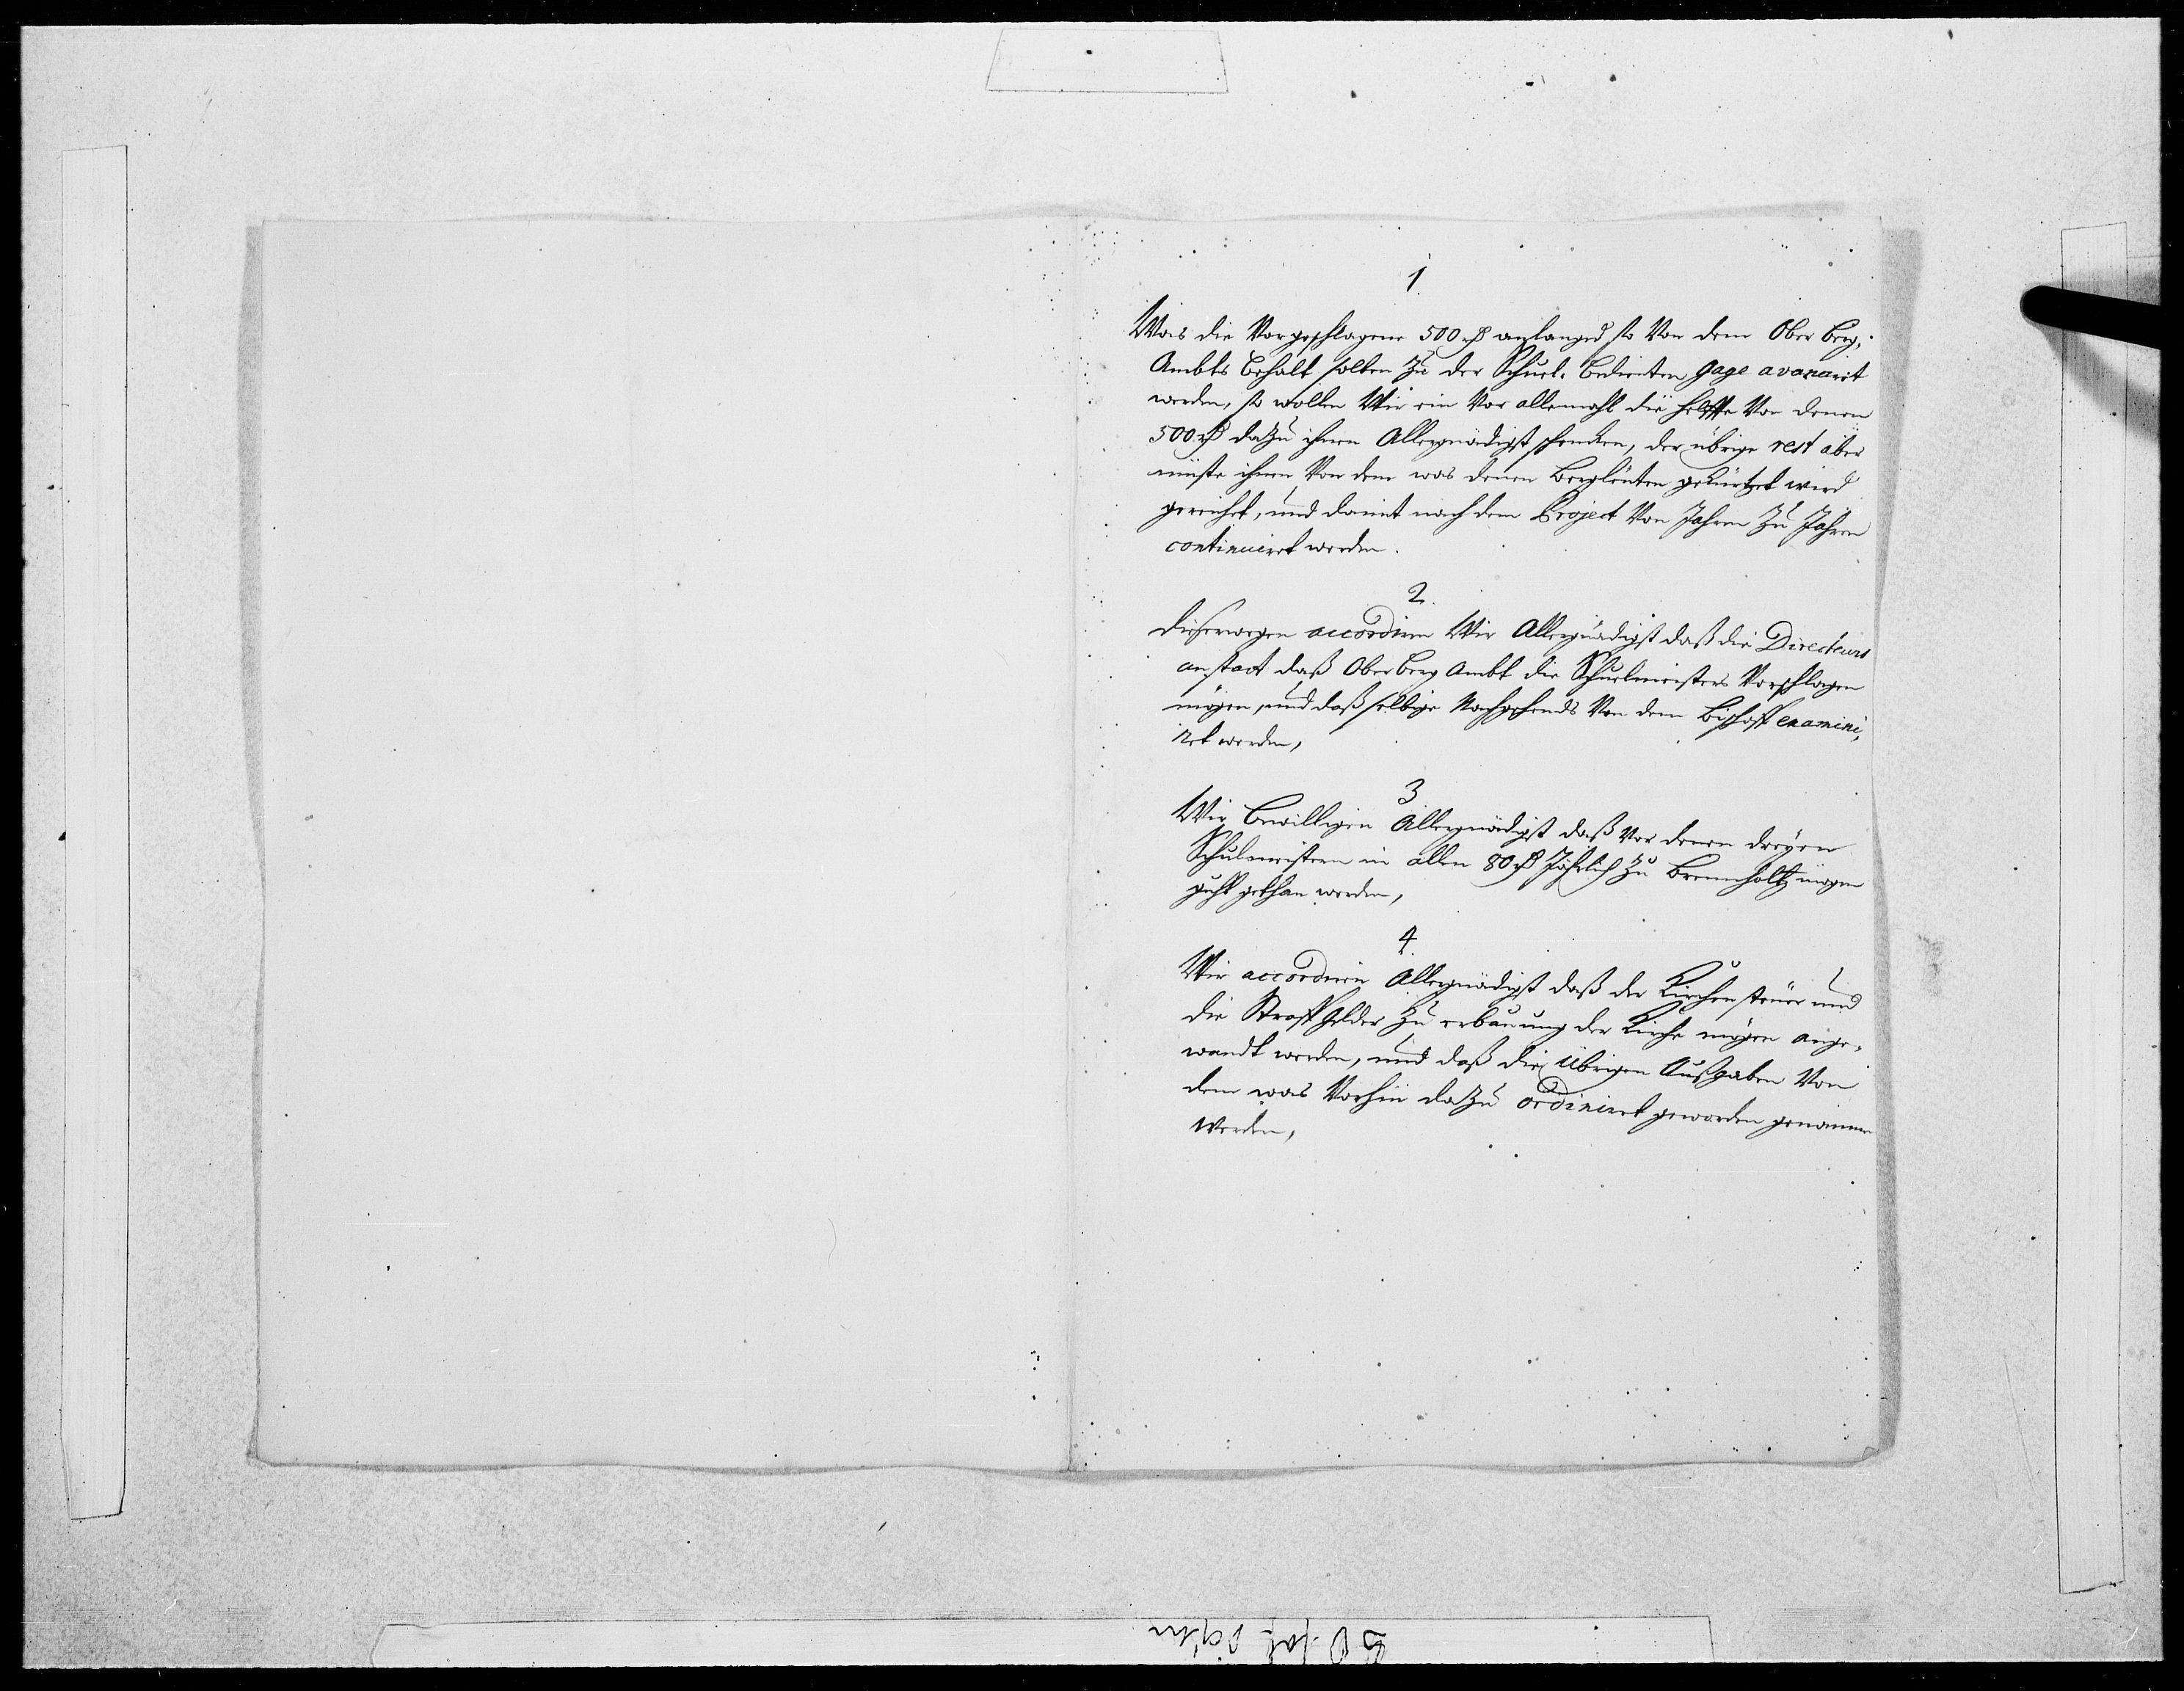 1.
Was die Vorgeschlagene 500 rß anlanged so Von dem Ober Berg,
Ambts behalt solten Zu der Schuel-bedienten gage avancirt
werden, so wollen Wir ein Vor allemahl die helffte Von denen
500 rß dazu ihnen Allergnädigst schencken, der übrige rest aber
müste ihnen Von dem was denen Bergleuten gekürtzet wird
gereichet, und damit nach dem Project Von Jahren Zu Jahren
continuiret werden.
2.
dieserwegen accordiren Wir Allergnädigst daß die Directeurs
anstat daß Ober Berg Ambt die Schuelmeisters Vorschlagen
mögen, und daß selbige Nachgehends Von dem Bischoff examini,
ret werden,
3
Wir bewilligen Allergnädigst daß Vor denen dreyen
Schulmeistern in allen 80 rß Jährlich Zu Brennholtz mögen
guht gethan werden,
4.
Wir accordiren Allergnädigst daß die Kirchen steuer und
die Straff Gelder Zu erbauung der Kirche mögen ange,
wandt werden, und daß die übrigen Außgaben Von
dem was Vorhin dazu ordiniret geworden genommen
Werden,